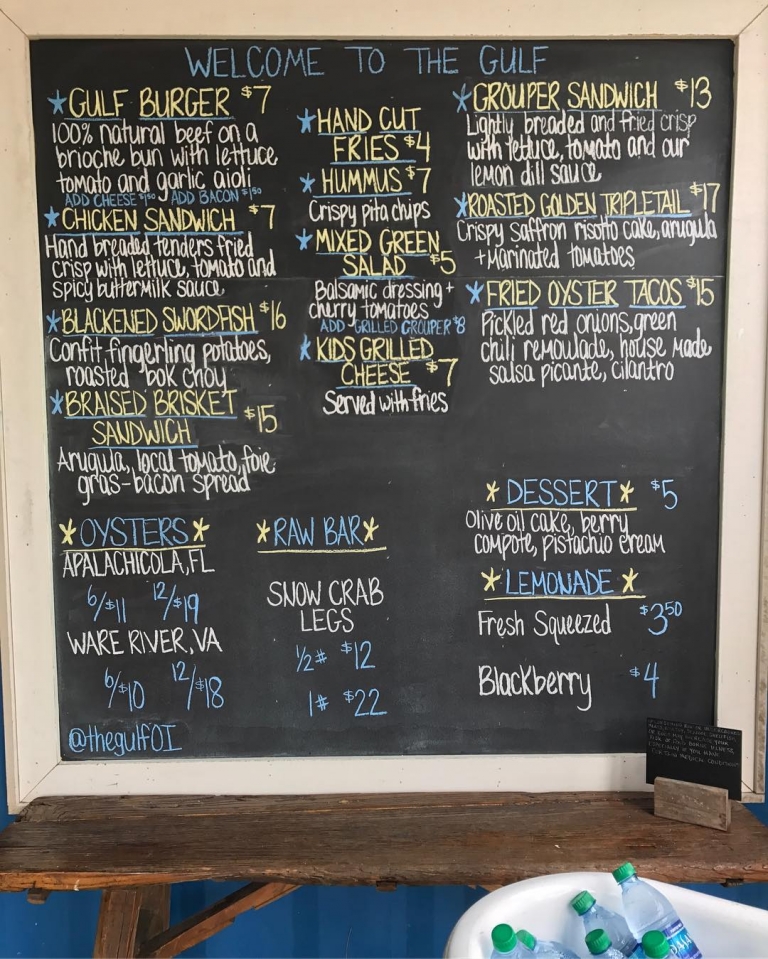 WELCOME TO THE GULF
*GULF BURGER $7
100% natural beef on a
brioche bun with lettuce
tomato and garlic aioli
ADD CHEESE $1.50 ADD BACON $1.50
*CHICKEN SANDWICH $7
Hand breaded tenders fried
crisp with lettuce, tomato and
spicy buttermilk sauce
*BLACKENED SWORDFISH $16
Confit fingerling potatoes,
roasted bok choy
*BRAISED BRISKET
SANDWICH $15
Arugula, local tomato, foie
gras-bacon spread
*HAND CUT
FRIES $4
*HUMMUS $7
Crispy pita chips
*MIXED GREEN
SALAD $5
Balsamic dressing +
cherry tomatoes
ADD-GRILLED GROUPER $8
*KIDS GRILLED
CHEESE $7
Served with fries
*GROUPER SANDWICH $13
Lightly breaded and fried crisp
with lettuce, tomato and our
lemon dill sauce
*ROASTED GOLDEN TRIPLETAIL $17
Crispy saffron risotto cake, arugula
+ Marinated tomatoes
*FRIED OYSTER TACOS $15
Pickled red onions, green
chili remoulade, house made
salsa picante, cilantro
*OYSTERS*
APALACHICOLA, FL
6/$11 12/$19
WARE RIVER, VA
6/$10 12/$18
@thegulfOI
*RAW BAR*
SNOW CRAB
LEGS
1/2# $12
1# $22
*DESSERT* $5
Olive oil cake, berry
compote, pistachio cream
*LEMONADE*
Fresh Squeezed $3.50
Blackberry $4